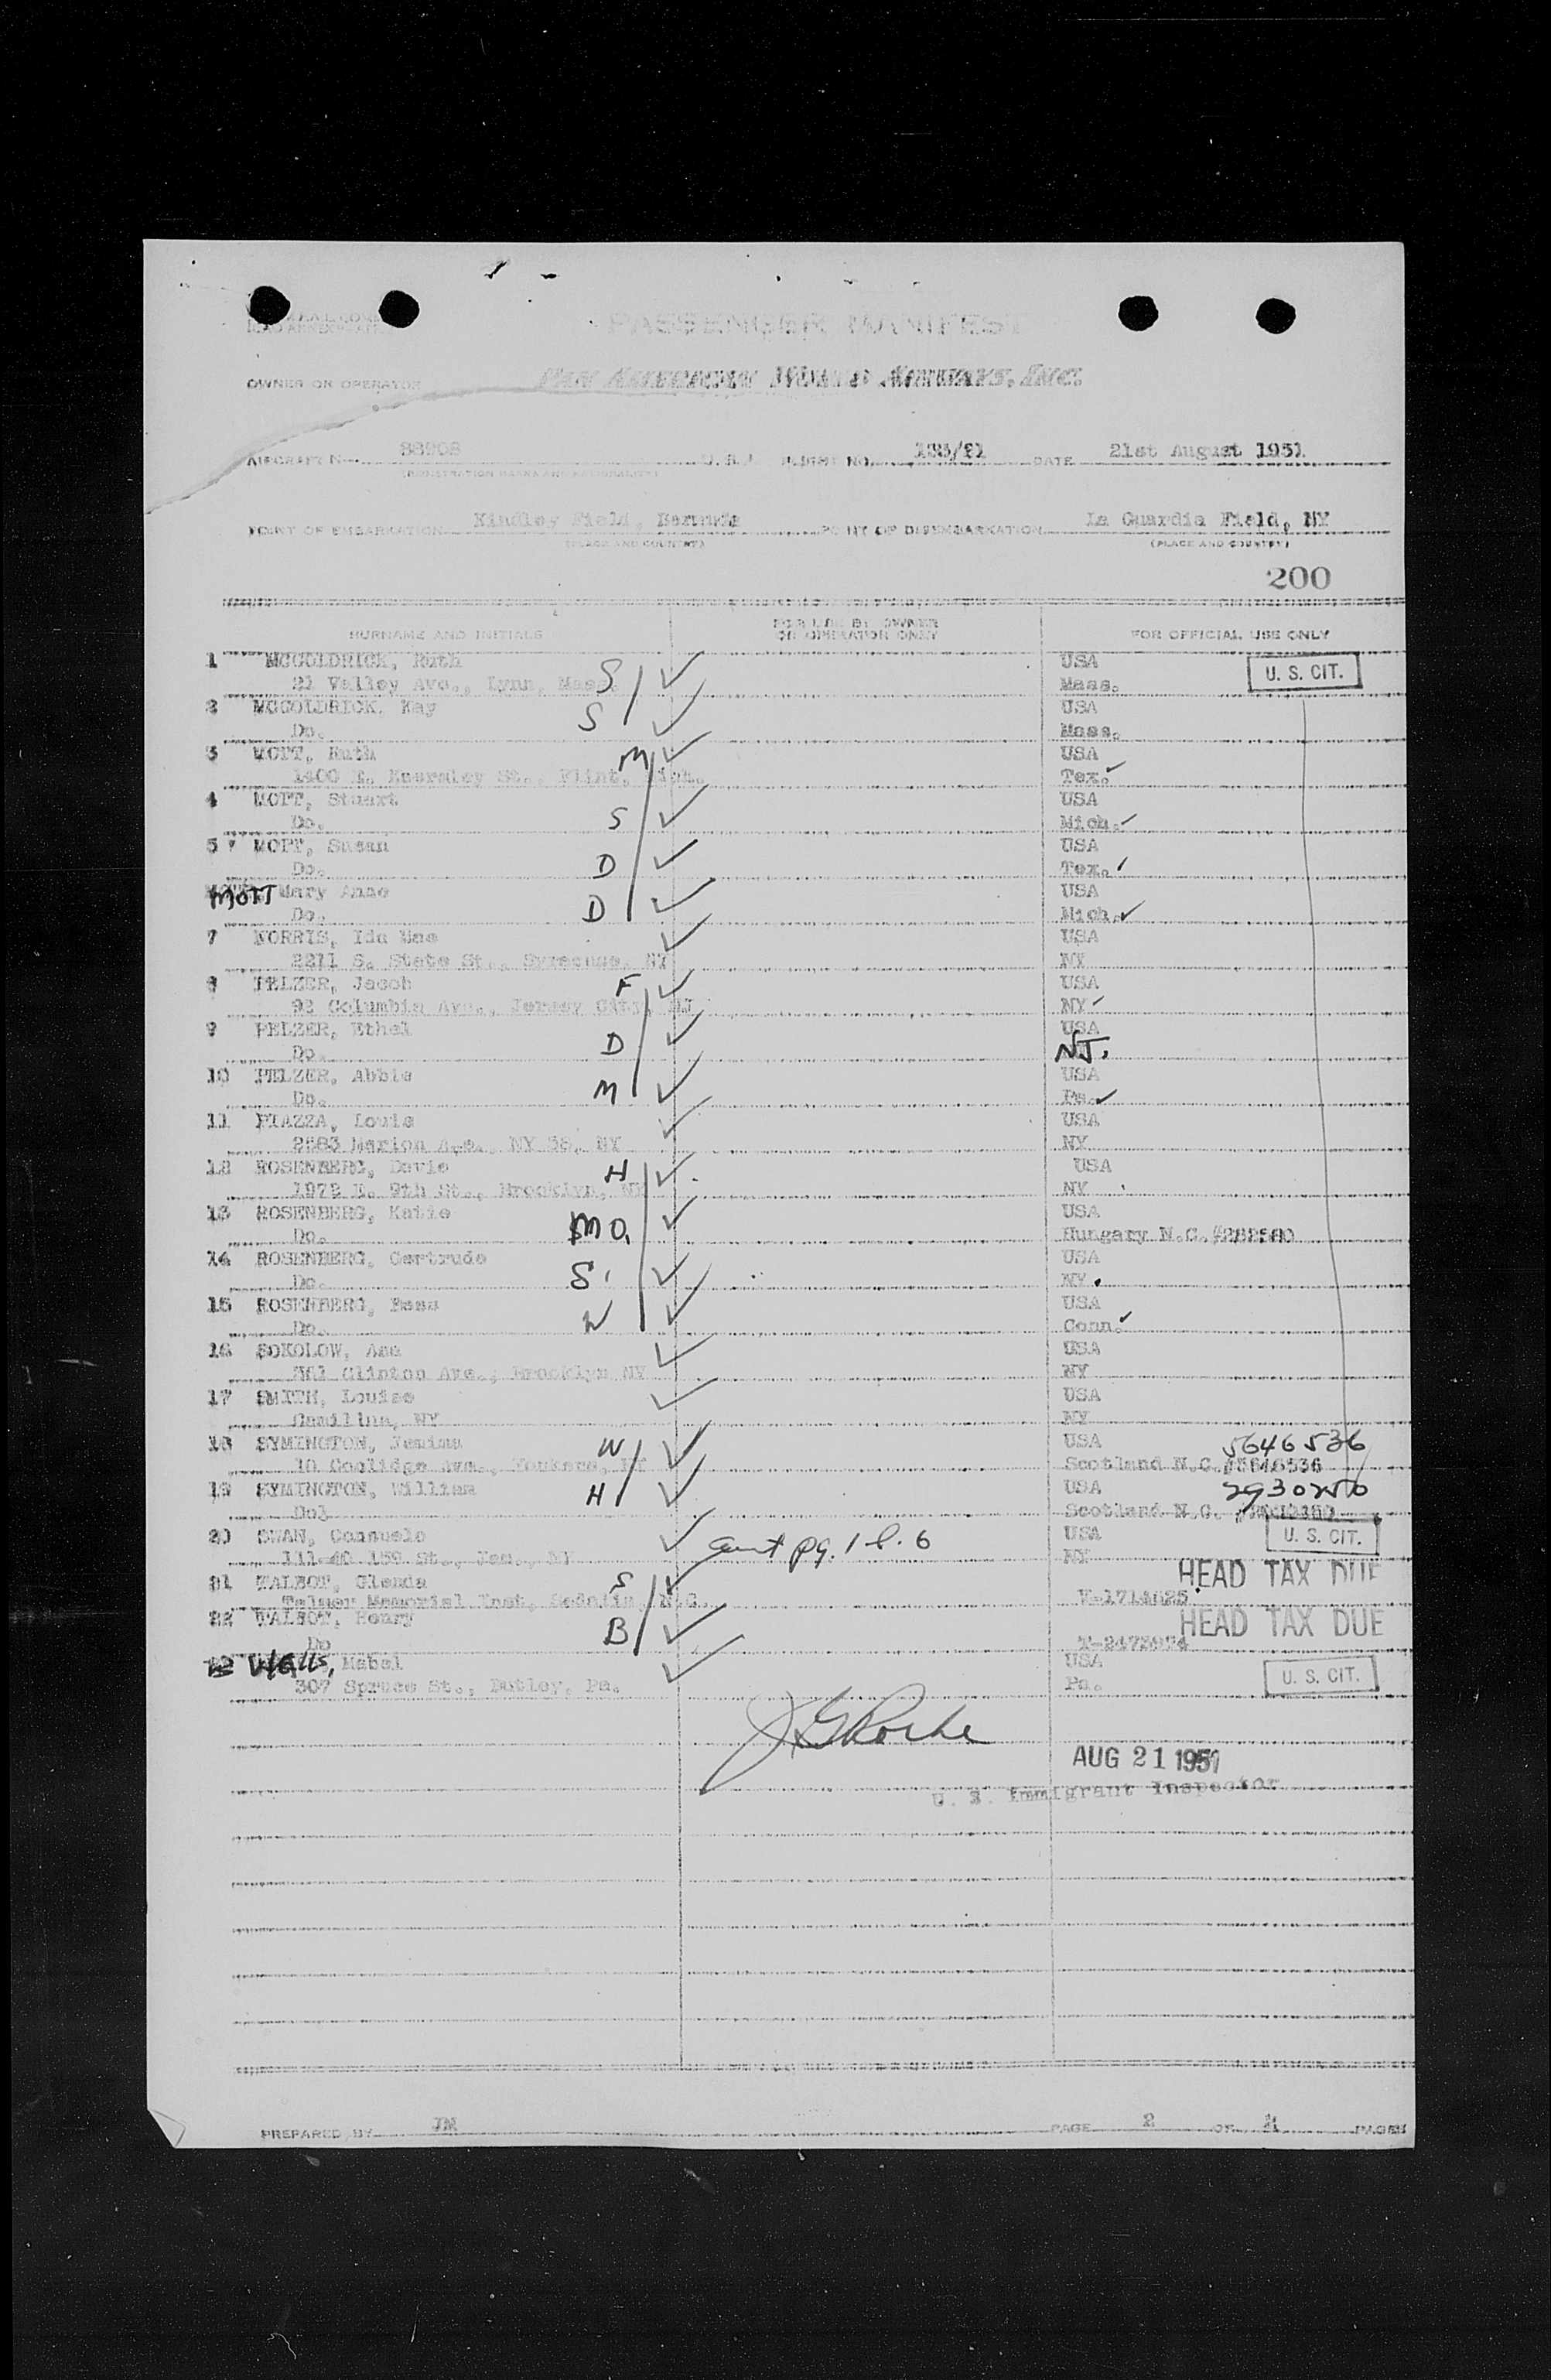 PASSENGER MANIFEST
OWNER OR OPERATOR PAN AMERICAN WORLD AIRWAYS, INC.
AIRCRAFT 88908 FLIGHT NO. DATE 21st August 1951
POINT OF EMBARKATION Kindley Field, Bermuda POINT OF DISEMBARKATION La Guardia Field, NY
(PLACE AND COUNTRY) (PLACE AND COUNTRY)
200
SURNAME AND INITIALS FOR USE BY OWNER OR OPERATOR ONLY FOR OFFICIAL USE ONLY
1 MCGOLDRICK, Ruth USA U. S. CIT.
21 Valley Ave., Lynn, Mass. S Mass.
2 MCGOLDRICK, Kay USA
Do. S Mass.
3 MOTT, Ruth M USA
1400 E. St., Flint, Mich. Tex.
4 MOTT, Stuart USA
Do. S Mich.
5 MOTT, Susan USA
Do. D Tex.
MOTT Mary Anne USA
Do. D Mich.
7 NORRIS, Ida Mae USA
2211 S. State St., Syracuse, NY NY
8 PELZER, Jacob F USA
92 Columbia Ave., Jersey City, NJ NY
9 PELZER, Ethel USA
Do. D NJ.
10 PELZER, Abbie USA
Do. M Pa.
11 PIAZZA, Louis USA
2583 Marion Ave., NY 58, NY NY
12 ROSENBERG, Davis H USA
1972 E. 9th St., Brooklyn, NY NY
13 ROSENBERG, Katie USA
Do. MO. Hungary N.C.
14 ROSENBERG, Gertrude USA
Do. S. NY
15 ROSENBERG, Bess USA
Do. W Conn.
16 SOKOLOW, Ann USA
Clinton Ave., Brooklyn NY NY
17 SMITH, Louise USA
Camillus, NY NY
18 SYMINGTON, Jemima W USA 5646536
10 Coolidge Ave., Yonkers, NY Scotland N.C. #5646536
19 SYMINGTON, William H USA 2930250
Do. Scotland N.C.
20 SWAN, Consuelo aunt pg. 1 l. 6 USA U. S. CIT.
111-40 159 St., Jam., NY NY
21 TALBOT, Glenda S HEAD TAX DUE
Palmer Memorial Inst, Sedalia, N.C.
22 TALBOT, Henry B HEAD TAX DUE
Do
Walls, Mabel USA
307 Spruce St., Pa. Pa. U. S. CIT.
AUG 21 1951
U. S. Immigrant Inspector
PREPARED BY JM PAGE 2 OF PAGES